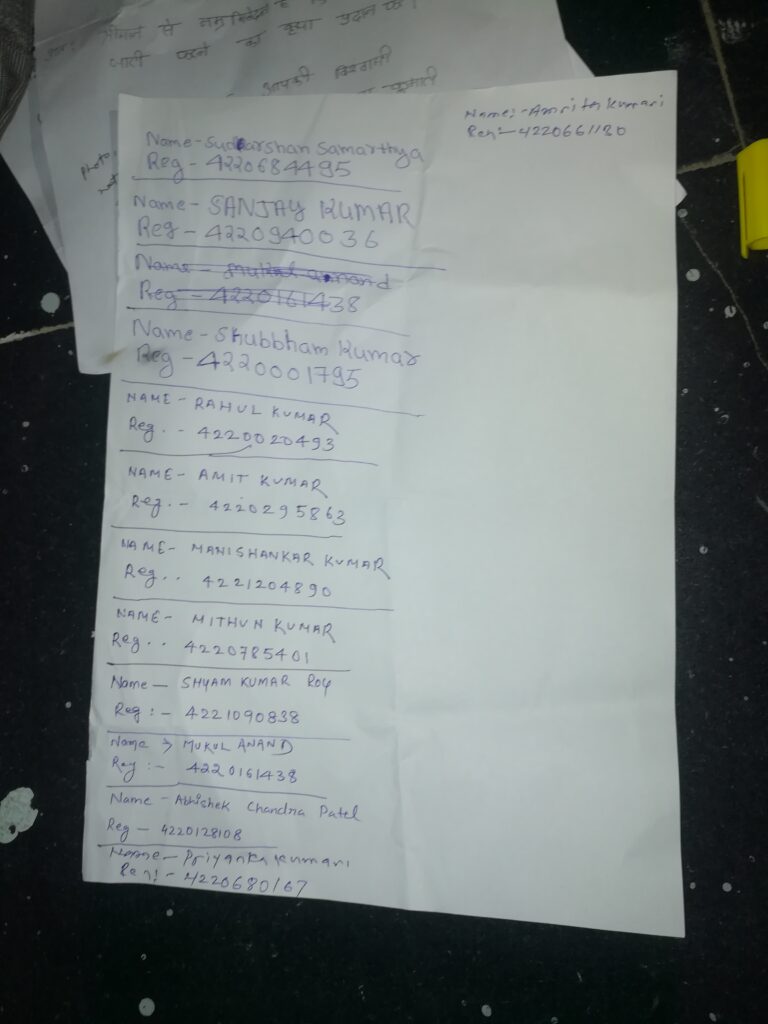 नम्र निवेदन है
जारी करने का कृपा प्रदान करें।
आपकी विश्वासी
कुमारी
photo
Name:- Amrita Kumari
Reg:- 4220661180
Name - Sudarshan Samarthya
Reg - 4220684495
Name - SANJAY KUMAR
Reg - 4220940036
Name - mukul anand
Reg - 4220161438
Name - Shubbham Kumar
Reg - 4220001795
NAME - RAHUL KUMAR
Reg. - 4220020493
NAME - AMIT KUMAR
Reg. - 4220295863
NAME - MANISHANKAR KUMAR
Reg. . 4221204890
NAME - MITHUN KUMAR
Reg. . 4220785401
Name - SHYAM KUMAR ROY
Reg : - 4221090838
Name → MUKUL ANAND
Reg :- 4220161438
Name - Abhishek Chandra Patel
Reg - 4220128108
Name - Priyanka Kumari
Reg:- 4220680167